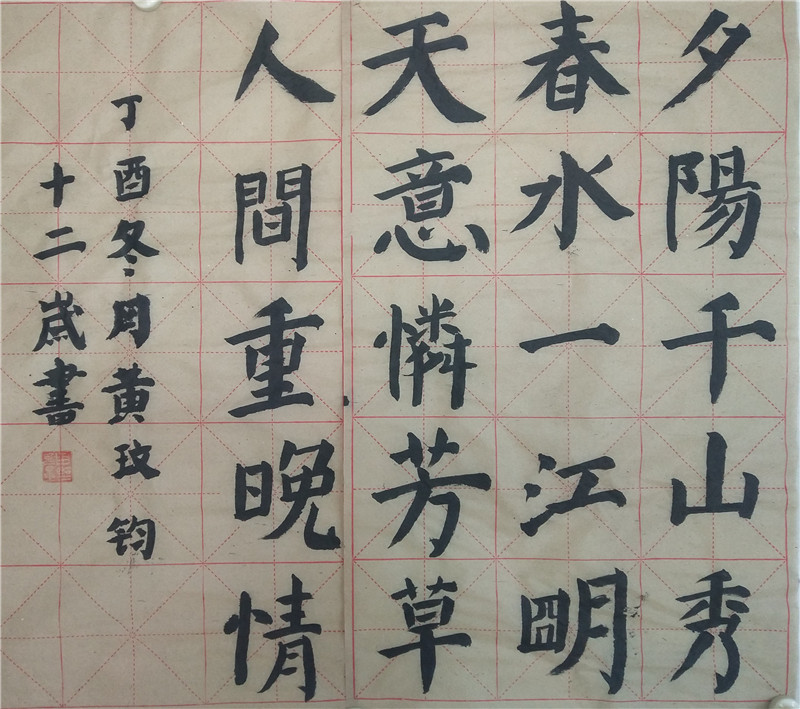 夕陽千山秀
春水一江朙
天意憐芳草
人間重晚情
丁酉冬月黄玟钧
十二歲書